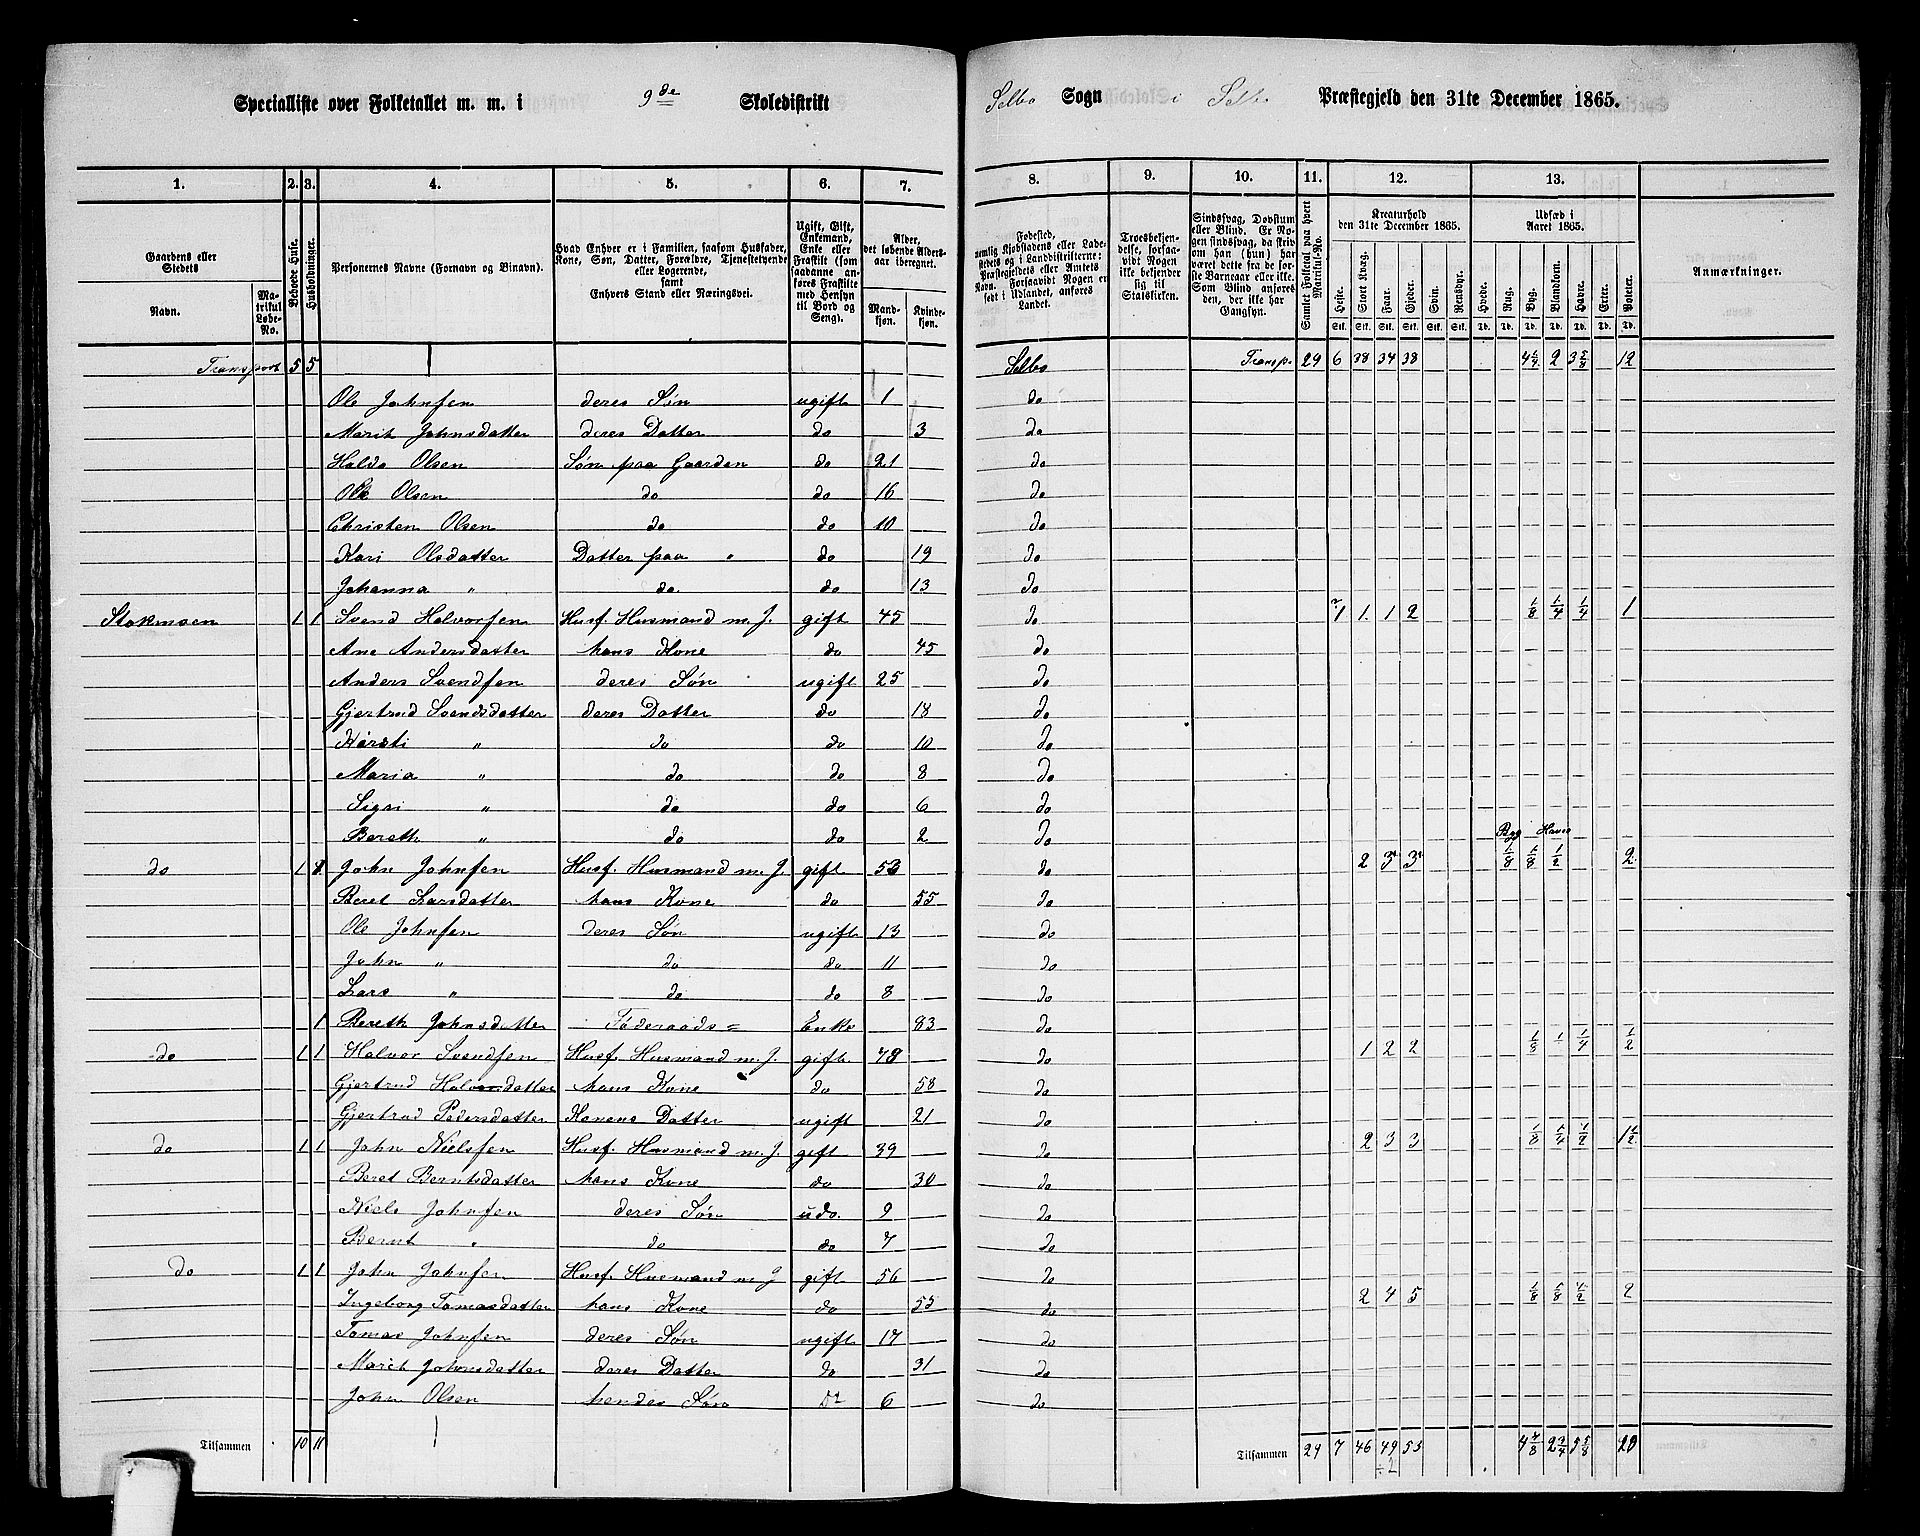 Specialliste over Folketallet m. m. i 9de Skoledistrikt Selbo Sogn i Selbo Præstegjeld den 31te December 1865.
1. 2. 3. 4. 5. 6. 7. 8. 9. 10. 11. 12. 13.
Gaardens eller Stedets Navn. Matrikul Løbe-No. Beboede Huse. Husholdninger. Personernes Navne (Fornavn og Binavn). Hvad Enhver er i Familien, saasom Husfader, Kone, Søn, Datter, Forældre, Tjenestetyende eller Logerende, samt Enhvers Stand eller Næringsvei. Ugift, Gift, Enkemand, Enke eller Fraskilt (som saadanne anføres Fraskilte med Hensyn til Bord og Seng). Alder, det løbende Alders-aar iberegnet. Mandkjøn. Kvindekjøn. Fødested, nemlig Kjøbstadens eller Ladestedets og i Landdistrikterne: Præstegjeldets eller Amtets Navn. Forsaavidt Nogen er født i Udlandet, anføres Landet. Troesbekjendelse, forsaavidt Nogen ikke bekjender sig til Statskirken. Sindssvag, Døvstum eller Blind. Er Nogen sindssvag, da skriv om han (hun) har været dette fra de første Barneaar eller ikke. Som Blind anføres den, der ikke har Gangsyn. Samlet Folketal paa hvert Matrikul-No. Kreaturhold den 31te December 1865. Heste. Stort Kvæg. Faar. Gjeder. Svin. Rensdyr. Udsæd i Aaret 1865. Hvede. Rug. Byg. Blandkorn. Havre. Erter. Poteter. Anmærkninger.
Stk. Stk. Stk. Stk. Stk. Stk. Td. Td. Td. Td. Td. Td. Td.
Transport 5 5 Selbo Transp. 29 6 38 34 38 2 12
Ole Johnsen deres Søn ugift 1 do
Marit Johnsdatter deres Datter do 3 do
Haldo Olsen Søn paa Gaarden do 21 do
Ole Olsen do do 16 do
Christen Olsen do do 10 do
Kari Olsdatter Datter paa " do 19 do
Johanna " do do 13 do
Stokmoen 1 1 Svend Halvorsen Husf. Husmand m. J. gift 45 do 1 1 1 2 1/8 1/4 1/4 1
Ane Andersdatter hans Kone do 45 do
Anders Svendsen deres Søn ugift 25 do
Gjertrud Svendsdatter deres Datter do 18 do
Kirsti " do do 10 do
Maria " do do 8 do
Sigri " do do 6 do
Bereth " do do 2 do Byg Havre
do 1 1 John Johnsen Husf. Husmand m. J. gift 53 do 2 3 3 1/8 1/8 1/2 2
Beret Larsdatter hans Kone do 55 do
Ole Johnsen deres Søn ugift 13 do
John " do do 11 do
Lars " do do 8 do
1 Bereth Johnsdatter Føderaads= Enke 83 do
do 1 1 Halvor Svendsen Husf. Husmand m. J. gift 48 do 1 2 2 1/8 1/4 1/2
Gjertrud Halvorsdatter hans Kone do 58 do
Gjertrud Pedersdatter Konens Datter ugift 21 do
do 1 1 John Nielsen Husf. Husmand m. J. gift 39 do 2 3 3 1/8 1/4 1/2 1 1/2
Beret Berntsdatter hans Kone do 30 do
Niels Johnsen deres Søn u do. 9 do
Bernt " do do 7 do
do 1 1 John Johnsen Husf. Husmand m J gift 56 do
Ingeborg Tomasdatter hans Kone do 55 do 2 4 5 1/8 5/8 2
Tomas Johnsen deres Søn ugift 17 do
Marit Johnsdatter deres Datter do 31 do
John Olsen hendes Søn do 6 do
Tilsammen 10 11 Tilsammen 29 7 46 49 53 4 4/8 2 3/4 5 5/8 20
÷2